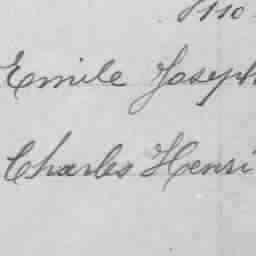 Emile Joseph
Charles Henri